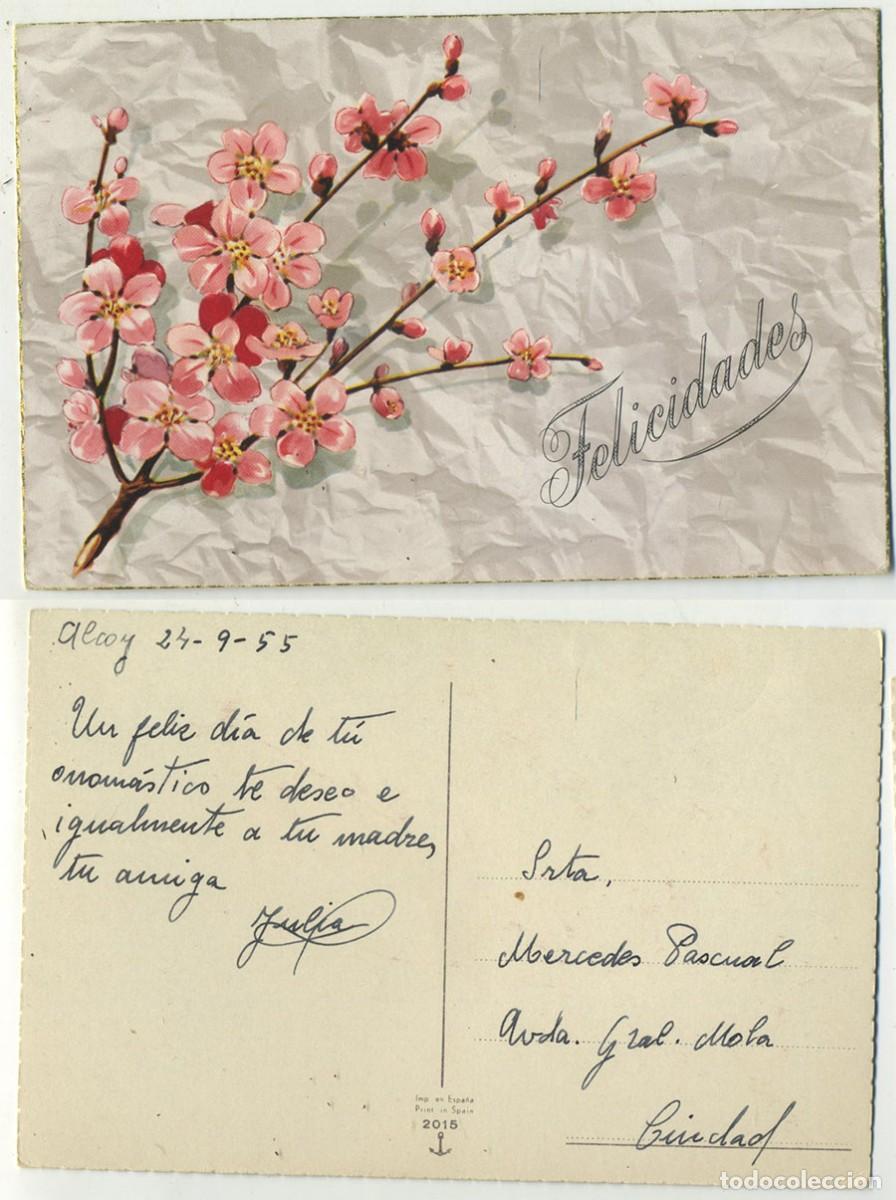 Felicidades
Alcoy 24-9-55
Un feliz día de tú
onomástico te deseo e
igualmente a tu madre,
tu amiga
Julia
Srta,
Mercedes Pascual
Avda. Gral. Mola
Ciudad
Imp. en España
Print in Spain
2015
todocoleccion